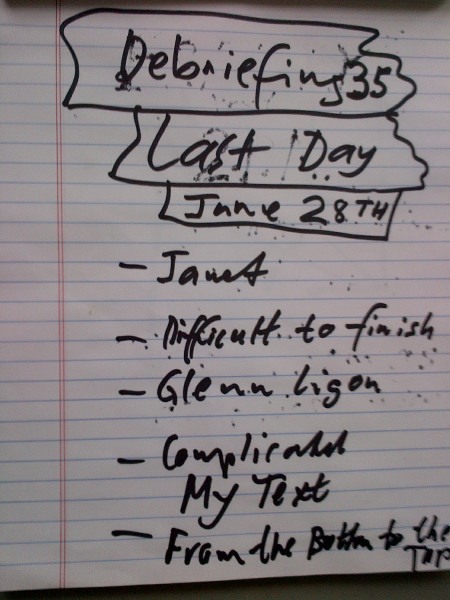 Debriefing 35
Last Day
June 28TH
- Janet
- Difficult to finish
- Glenn Ligon
- Complicated
My Text
- From the Bottom to the
Top